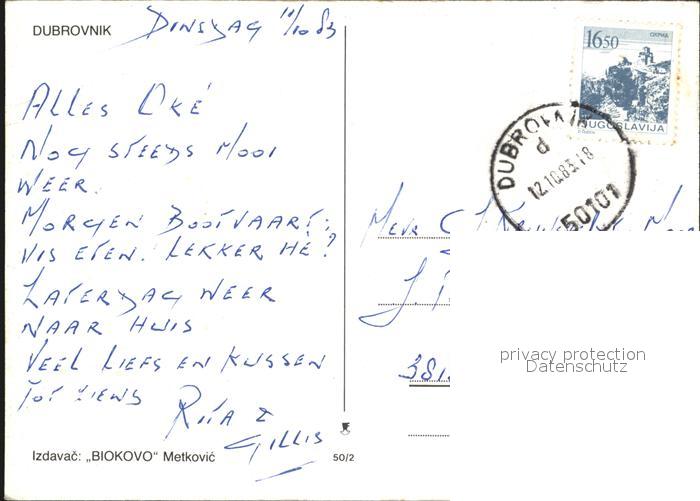 DUBROVNIK
DINSDAG 11/10 83
ALLES OKÉ
NOG STEEDS MOOI
WEER.
MORGEN BOOTVAART;
VIS ETEN. LEKKER HÉ?
ZATERDAG WEER
NAAR HUIS
VEEL LIEFS EN KUSSEN
TOT ZIENS
RIIA &
GILLIS
Izdavač: „BIOKOVO“ Metković
50/2
1650
ОХРИД
JUGOSLAVIJA
DUBROVNIK
d
12.10.83.18
50101
Mevr
381
privacy protection
Datenschutz